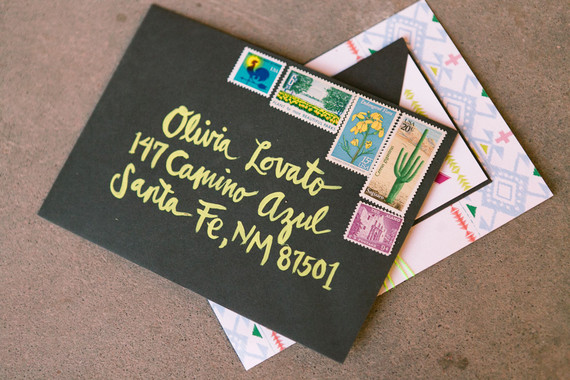 Olivia Lovato
147 Camino Azul
Santa Fe, NM 87501
20c